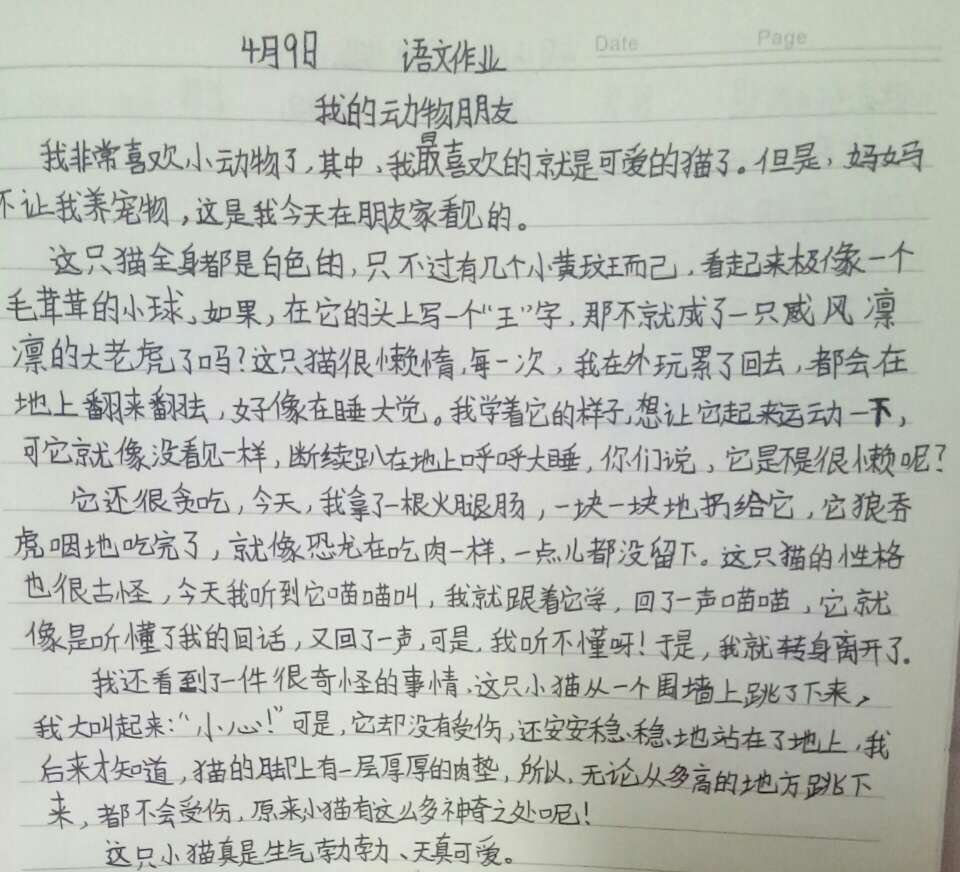 Date Page
4月9日 语文作业
我的动物朋友
我非常喜欢小动物了,其中,我最喜欢的就是可爱的猫了。但是,妈妈
不让我养宠物,这是我今天在朋友家看见的。
这只猫全身都是白色的,只不过有几个小黄玟王而己,看起来极像一个
毛茸茸的小球、如果,在它的头上写一个“王”字,那不就成了一只威风凛
凛的大老虎了吗?这只猫很懒惰,每一次,我在外玩累了回去,都会在
地上翻来翻去,好像在睡大觉。我学着它的样子,想让它起来运动一下,
可它就像没看见一样,断续趴在地上呼呼大睡,你们说,它是不是很懒呢?
它还很贪吃,今天,我拿了一根火腿肠,一块一块地扔给它,它狼吞
虎咽地吃完了,就像恐龙在吃肉一样,一点儿都没留下。这只猫的性格
也很古怪,今天我听到它喵喵叫,我就跟着它学,回了一声喵喵,它就
像是听懂了我的回话,又回了一声,可是,我听不懂呀!于是,我就转身离开了。
我还看到了一件很奇怪的事情,这只小猫从一个围墙上跳了下来,
我大叫起来:“小心!”可是,它却没有受伤,还安安稳稳地站在了地上,我
后来才知道,猫的脚上有一层厚厚的肉垫,所以,无论从多高的地方跳下
来,都不会受伤,原来小猫有这么多神奇之处呢!
这只小猫真是生气勃勃、天真可爱。